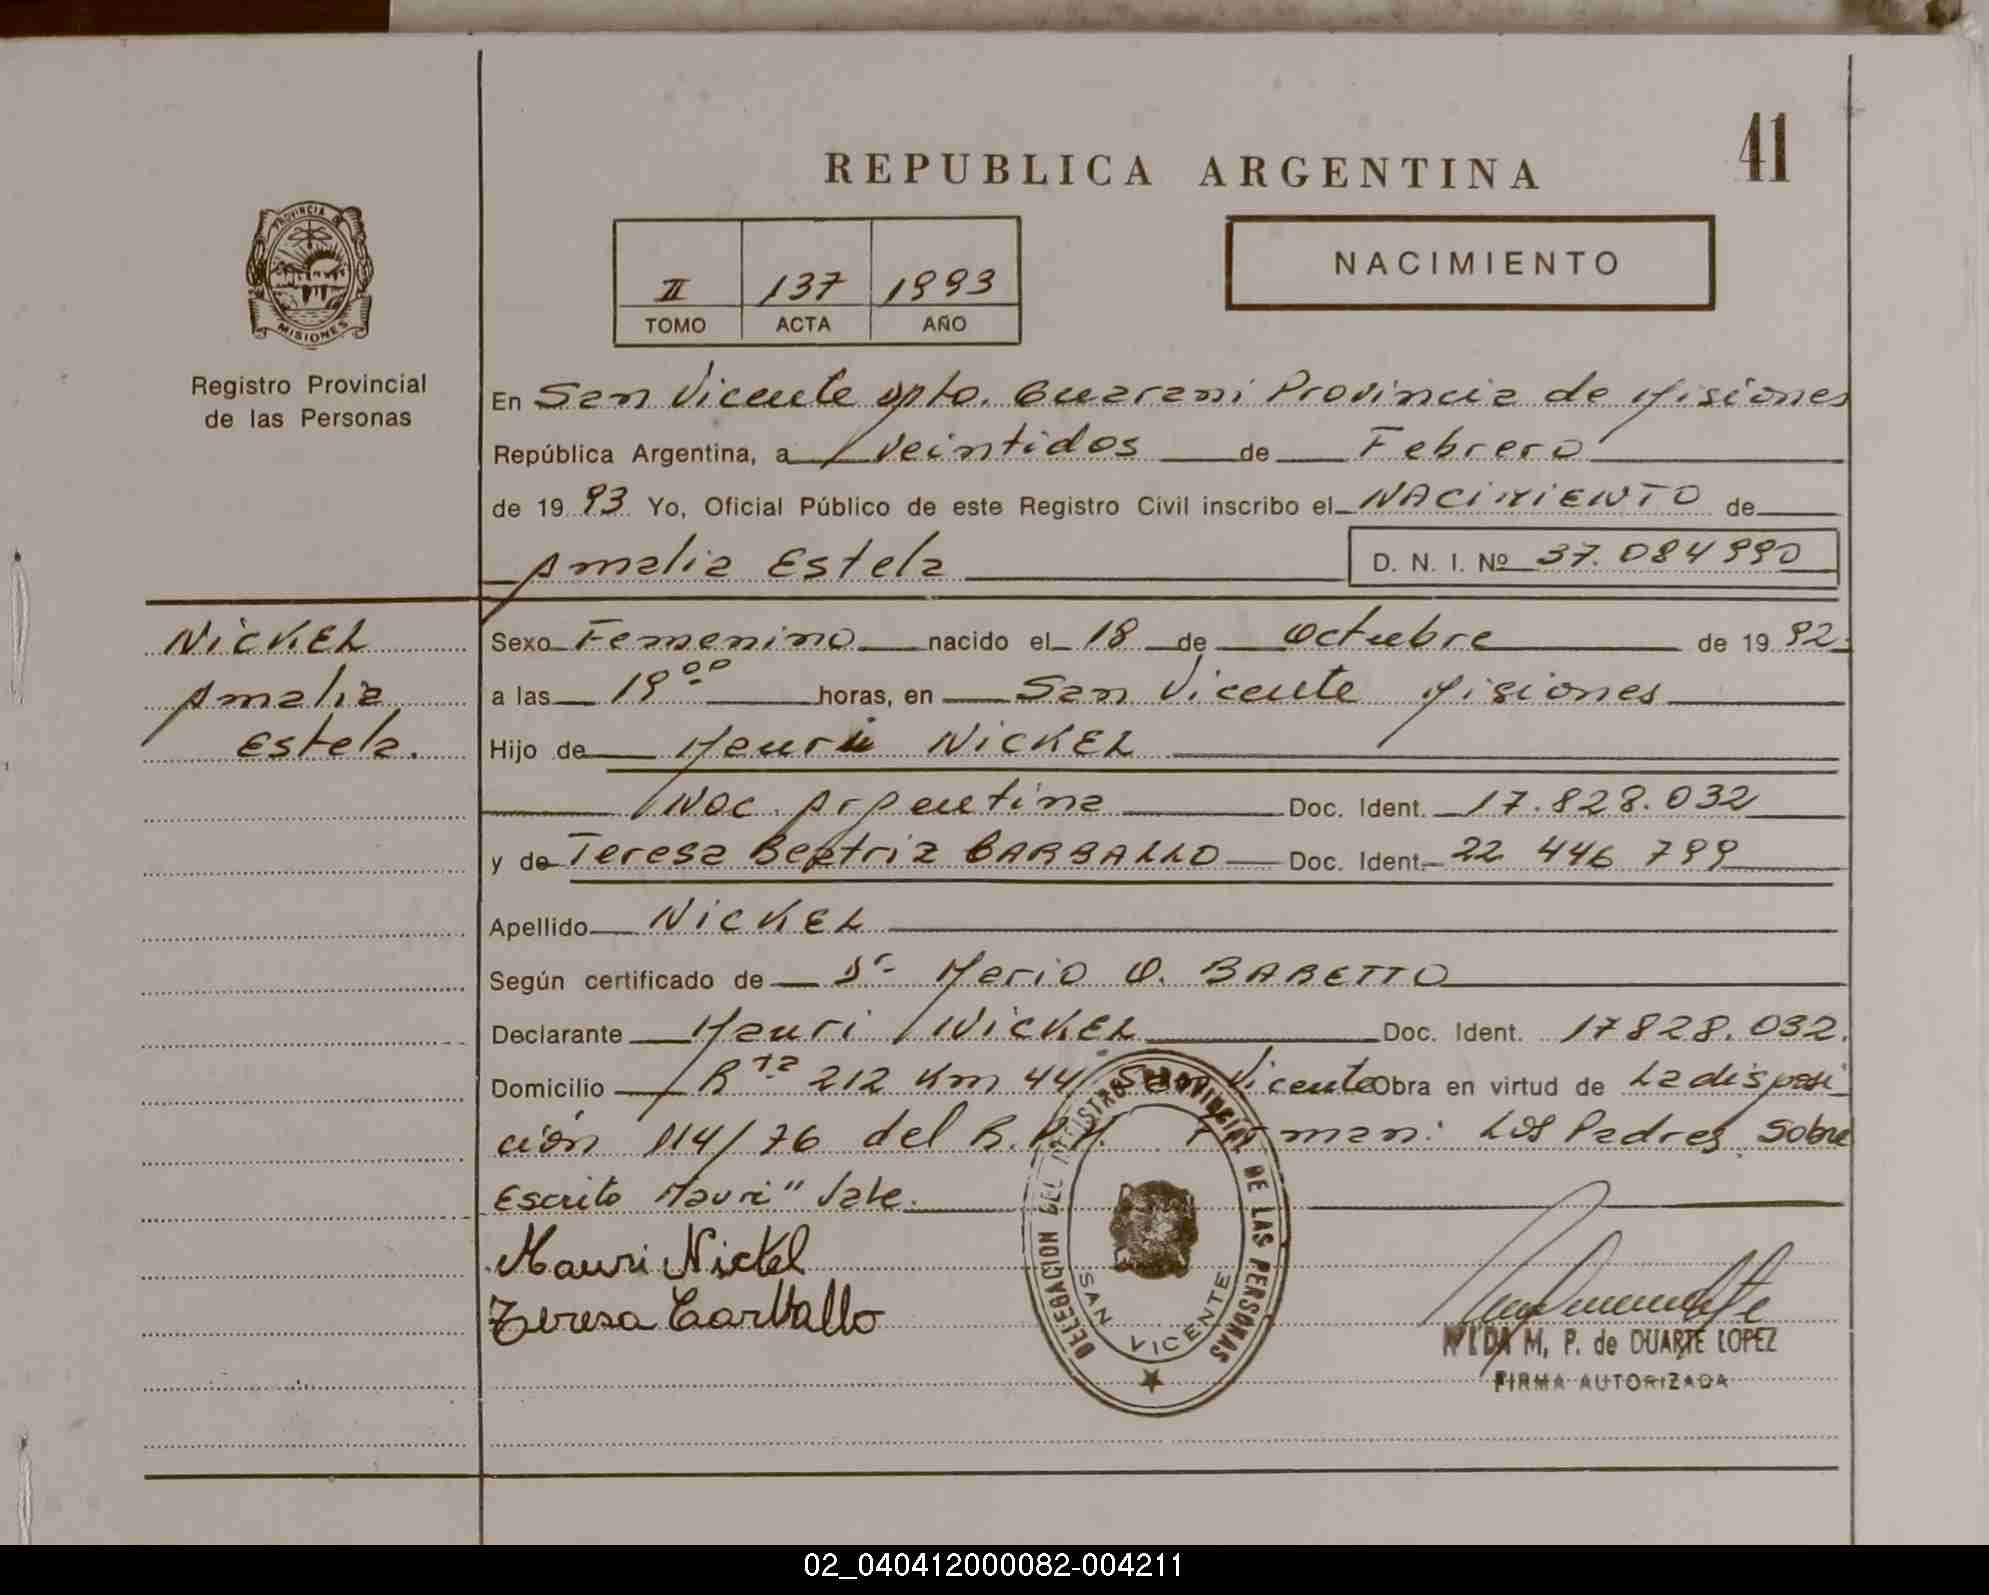 41
REPUBLICA ARGENTINA
PROVINCIA DE
MISIONES
Registro Provincial
de las Personas
II 137 1993
TOMO ACTA AÑO
NACIMIENTO
En San Vicente Dpto. Guaraní Provincia de Misiones
República Argentina, a veintidos de Febrero
de 1993 Yo, Oficial Público de este Registro Civil inscribo el NACIMIENTO de
Amalia Estela D. N. I. Nº 37.084990
NICKEL
Amalia
Estela.
Sexo Femenino nacido el 18 de Octubre de 1992
a las 19 00 horas, en San Vicente Misiones
Hijo de Mauri NICKEL
Nac. Argentina Doc. Ident. 17.828.032
y de Teresa Beatriz CARBALLO Doc. Ident. 22 446 799
Apellido NICKEL
Según certificado de Dr. Mario O. BARETTO
Declarante Mauri NICKEL Doc. Ident. 17828.032.
Domicilio Rta 212 Km 44 San Vicente Obra en virtud de La disposi
ción 114/76 del R.P.P. Firman: Los Padres Sobre
Escrito Mauri" Vale.
Mauri Nickel
Teresa Carballo
DELEGACION DEL REGISTRO PROVINCIAL DE LAS PERSONAS
SAN VICENTE
M, P. de DUARTE LOPEZ
FIRMA AUTORIZADA
02_040412000082-004211